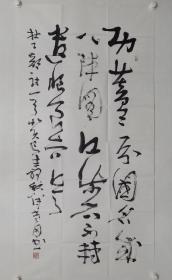 功蓋三分國名成
八陣圖江流石不轉
遺恨失吞吳
杜工部詩一首